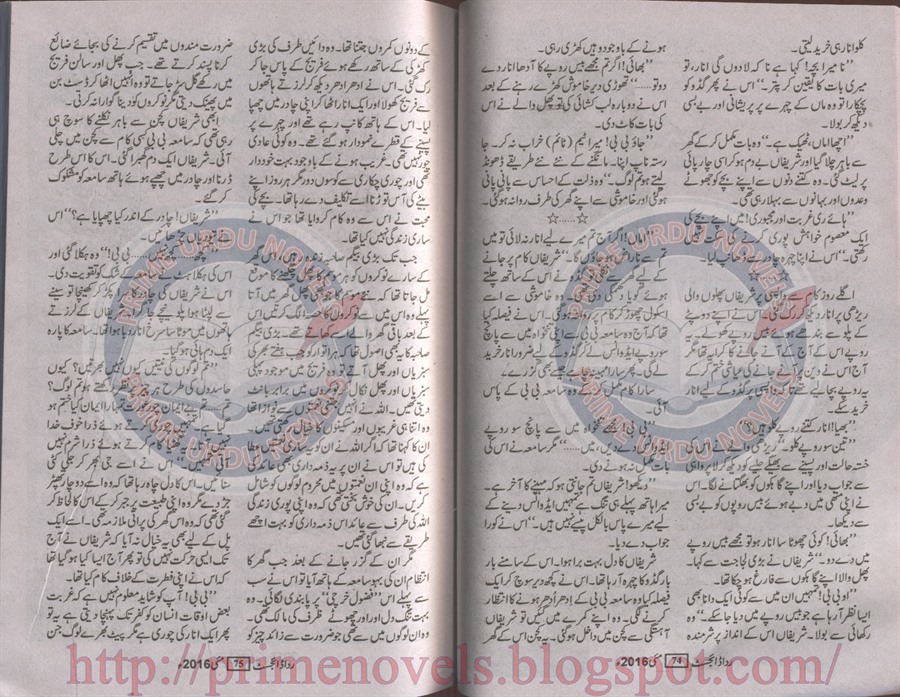 کلو انار ہی خرید لیتی۔
"نا میرا بچہ! کہا ہے نا کہ لا دوں گی انار، تو
میری بات کا یقین کر پتر۔" اس نے پھر گڈو کو
پچکارا تو وہ ماں کے چہرے پر پریشانی اور بے بسی
دیکھ کر بولا۔
"اچھا اماں، ٹھیک ہے۔" وہ بات مکمل کر کے گھر
سے باہر چلا گیا اور شریفاں بے دم ہو کر اسی چارپائی
پر لیٹ گئی۔ وہ کتنے دنوں سے اپنے بچے کو جھوٹے
وعدوں اور بہانوں سے بہلا رہی تھی۔
"ہائے ری غربت اور مجبوری! میں اپنے بچے کی
ایک معصوم خواہش پوری کرنے کی سکت نہیں
رکھتی۔" اس نے اپنا چہرہ ڈھانپ لیا۔
اگلے روز کام سے واپسی پر شریفاں پھلوں والی
ریڑھی پر انار دیکھ کر رک گئی۔ اس نے اپنے دوپٹے
کے پلو سے بندھے ہوئے بیس روپے کھولے۔ یہ
روپے اس کے آج کے آنے جانے کا کرایہ تھا مگر
آج اس نے دین پر جانے کی عیاشی ختم کر کے
یہ روپے بچا لیے تھے تاکہ واپسی پر گڈو کے لیے انار
خرید سکے۔
"بھیا! انار کتنے روپے کلو ہیں؟"
"تین سو روپے کلو۔" ریڑھی والے نے اس کی
خستہ حالت اور پسینے سے بھیگے حلیے کو دیکھ کر لا پرواہی
سے جواب دیا اور اپنے گاہکوں کو بھگتانے لگا۔ اس
نے اپنی مٹھی میں دبے ہوئے بیس روپوں کو بے بسی
سے دیکھا۔
"بھائی! کوئی چھوٹا سا انار ہو تو مجھے بیس روپے
میں دے دو۔" شریفاں نے بڑی لجاجت سے کہا۔
پھل والا اپنے گاہکوں سے فارغ ہو چکا تھا۔
"او بی بی! تمہیں ان میں سے کوئی ایک دانا بھی
ایسا نظر آ رہا ہے جو بیس روپے میں دیا جا سکے۔" وہ
رکھائی سے بولا۔ شریفاں اس کے انداز پر شرمندہ
ہونے کے باوجود وہیں کھڑی رہی۔
"بھائی! اگر تم مجھے بیس روپے کا آدھا انار دے
دو تو......" تھوڑی دیر خاموش کھڑے رہنے کے بعد
اس نے دوبارہ لب کشائی کی تو پھل والے نے اس
کی بات کاٹ دی۔
"جاؤ بی بی! میرا ٹیم (ٹائم) خراب نہ کر۔ جا
رستہ ناپ اپنا۔ مانگنے کے نئے نئے طریقے ڈھونڈ
لیتے ہو تم لوگ۔" وہ ذلت کے احساس سے پانی پانی
ہو گئی اور خاموشی سے اپنے گھر کی طرف روانہ ہو گئی۔
☆......☆
"اماں! اگر آج تم میرے لیے انار نہ لائی تو میں
تم سے ناراض ہو جاؤں گا۔" شریفاں کام پر جانے
کے لیے گھر سے
ہوئے گویا دھمکی دی تھی۔ وہ خاموشی سے اسے
اسکول چھوڑ کر کام پر روانہ ہو گئی۔ اس نے فیصلہ کیا
تھا کہ آج وہ سامعہ بی بی سے اپنی تنخواہ میں سے پانچ
سو روپے ایڈوانس لے کر گڈو کے لیے ضرور انار خرید
لے گی۔ پھر سارا مہینہ چاہے جیسے بھی گزرے۔
سارا کام مکمل کر کے وہ سامعہ بی بی کے پاس
آئی۔
"بی بی! مجھے تنخواہ میں سے پانچ سو روپے
ایڈوانس دے دیں، میں......" مگر سامعہ نے اس کی
بات مکمل نہ ہونے دی۔
"دیکھو! شریفاں تم جانتی ہو کہ مہینے کا آخر ہے۔
میرا ہاتھ پہلے ہی تنگ ہے تمہیں ایڈوانس دینے کے
لیے میرے پاس بالکل پیسے نہیں ہیں۔" اس نے کورا
جواب دے دیا۔
شریفاں کا دل بہت برا ہوا۔ اس کے سامنے بار
بار گڈو کا چہرہ آ رہا تھا۔ اس نے کچھ دیر سوچ کر ایک
فیصلہ کیا وہ سامعہ بی بی کے ادھر ادھر ہونے کا انتظار
کرنے لگی۔ وہ اپنے کمرے میں گئی تو شریفاں
آہستگی سے کچن میں داخل ہوئی۔ یہ کچن اس کے گھر
رداڈائجسٹ 74 مئی 2016ء
کے دونوں کمروں جتنا تھا۔ وہ دائیں طرف کی بڑی
کھڑکی کے ساتھ رکھے ہوئے فریج کے پاس جا کر
رک گئی۔ اس نے ادھر ادھر دیکھ کر لرزتے ہاتھوں
سے فریج کھولا اور ایک انار اٹھا کر اپنی چادر میں چھپا
لیا۔ اس کے ہاتھ کانپ رہے تھے اور چہرے پر
پسینے کے قطرے نمودار ہو گئے تھے۔ وہ کوئی عادی
چور نہیں تھی۔ غریب ہونے کے باوجود بہت خوددار
تھی اور چوری چکاری سے کوسوں دور مگر ہر روز اپنے
بیٹے کی آس توڑنا اسے تکلیف دے رہا تھا۔ بچے کی
محبت نے اس سے وہ کام کروایا تھا جو اس نے
ساری زندگی نہیں کیا تھا۔
جب تک بڑی بیگم صاحبہ زندہ رہیں، ان
کے سارے نوکروں کو ہر موسم کا پھل چکھنے کا موقع
مل جاتا تھا کہ نئے موسم کا جو بھی پھل گھر میں آتا
پہلے وہ اس میں سے نوکروں کا حصہ الگ کرتیں اس
کے بعد باقی گھر والوں کے لیے رکھا جاتا۔ بڑی بیگم
صاحبہ کا یہ بھی اصول تھا کہ ہر اتوار کو جب ہفتے بھر کی
سبزیاں اور پھل آتے تو وہ فریج میں موجود پچھلی
سبزیاں اور پھل نکال کر نوکروں میں برابر بانٹ
دیتی تھیں۔ اللہ نے انہیں جتنی نعمتوں سے نوازا تھا
وہ اتنا ہی غریبوں اور مسکینوں کا خیال رکھتی تھیں۔
ان کا کہنا تھا کہ اگر اللہ نے ان کو یہ ساری نعمتیں عطا
کی ہیں تو اس نے ان پر یہ ذمہ داری بھی عائد کی
ہے کہ وہ اپنی ان نعمتوں میں محروم لوگوں کو شامل
کریں۔ ان کی خوش بختی تھی کہ وہ اپنی پوری زندگی
اللہ کی طرف سے عائد اس ذمہ داری کو بہت اچھے
طریقے سے نبھا گئی تھیں۔
مگر ان کے گزر جانے کے بعد جب گھر کا
انتظام ان کی بہو سامعہ کے ہاتھ آیا تو اس نے سب
سے پہلے اس "فضول خرچی" پر پابندی لگائی۔ وہ
بہت تنگ دل اور اور چھوٹے ظرف کی مالک تھی۔
وہ ان لوگوں میں سے تھی جو ضرورت سے زائد چیز کو
ضرورت مندوں میں تقسیم کرنے کی بجائے ضائع
کرنا پسند کرتے تھے۔ جب پھل اور سالن فریج
میں رکھے گل سڑ جاتے تو وہ انہیں اٹھا کر ڈسٹ بن
میں پھینک دیتی مگر نوکروں کو دینا گوارا نہ کرتی۔
ابھی شریفاں کچن سے باہر نکلنے کا سوچ ہی
رہی تھی کہ سامعہ بی بی کسی کام سے کچن میں چلی
آئی۔ شریفاں ایک دم گھبرا گئی۔ اس کا اس طرح
ڈرنا اور چادر میں چھپے ہوئے ہاتھ سامعہ کو مشکوک
کر گئے۔
"شریفاں! چادر کے اندر کیا چھپایا ہے؟" اس
نے تیوریاں چڑھا لیں۔
بی بی!" وہ ہکلا گئی اور
اس کی ہکلاہٹ نے سامعہ کے شک کو تقویت دی۔
اس نے شریفاں کی چادر کا پلو پکڑ کر کھینچا تو سینے
سے لپٹا ہوا پلو نیچے جا گرا۔ شریفاں کے لرزتے
ہاتھوں میں موٹا سا سرخ انار دبا ہوا تھا۔ سامعہ کا پارہ
ایک دم ہائی ہو گیا۔
"تم لوگوں کی نیتیں کیوں نہیں بھرتیں؟ کیوں
حاسدوں کی طرح ہر چیز پر نظر رکھتے ہو تم لوگ؟
تم بے ایمان چور عورت تمہارا ایمان کیا ختم ہو
گیا ہے۔ تمہیں چوری کرتے ہوئے ذرا خوف خدا
نہیں آیا۔ یہ گھٹیا کام کرتے ہوئے ذرا شرم نہیں
آئی تمہیں۔" اس نے اسے جی بھر کر جلی کٹی
سنائیں۔ اس کا دل چاہ رہا تھا کہ وہ اسے دو چار تھپڑ
جڑ دے مگر وہ اپنی طبیعت پر جبر کر کے اس کا لحاظ کر
گئی تھی کہ وہ اس گھر کی پرانی ملازمہ تھی۔ اسے ایک
پل کے لیے بھی یہ خیال نہ آیا کہ شریفاں نے آج
تک ایسی حرکت نہیں کی تو پھر آج ایسا کیا ہو گیا تھا
کہ اس نے اپنی فطرت کے خلاف کام کیا تھا۔
"بی بی! آپ کو شاید معلوم نہیں ہے کہ غربت
بعض اوقات انسان کو کفر تک پہنچا دیتی ہے یہ تو
پھر ایک انار کی چوری ہے مگر پیٹ بھرے لوگ جن
رداڈائجسٹ 75 مئی 2016ء
PRIME URDU NOVELS
PRIME URDU NOVELS
PRIME URDU NOVELS
PRIME URDU NOVELS
http://primenovels.blogspot.com/